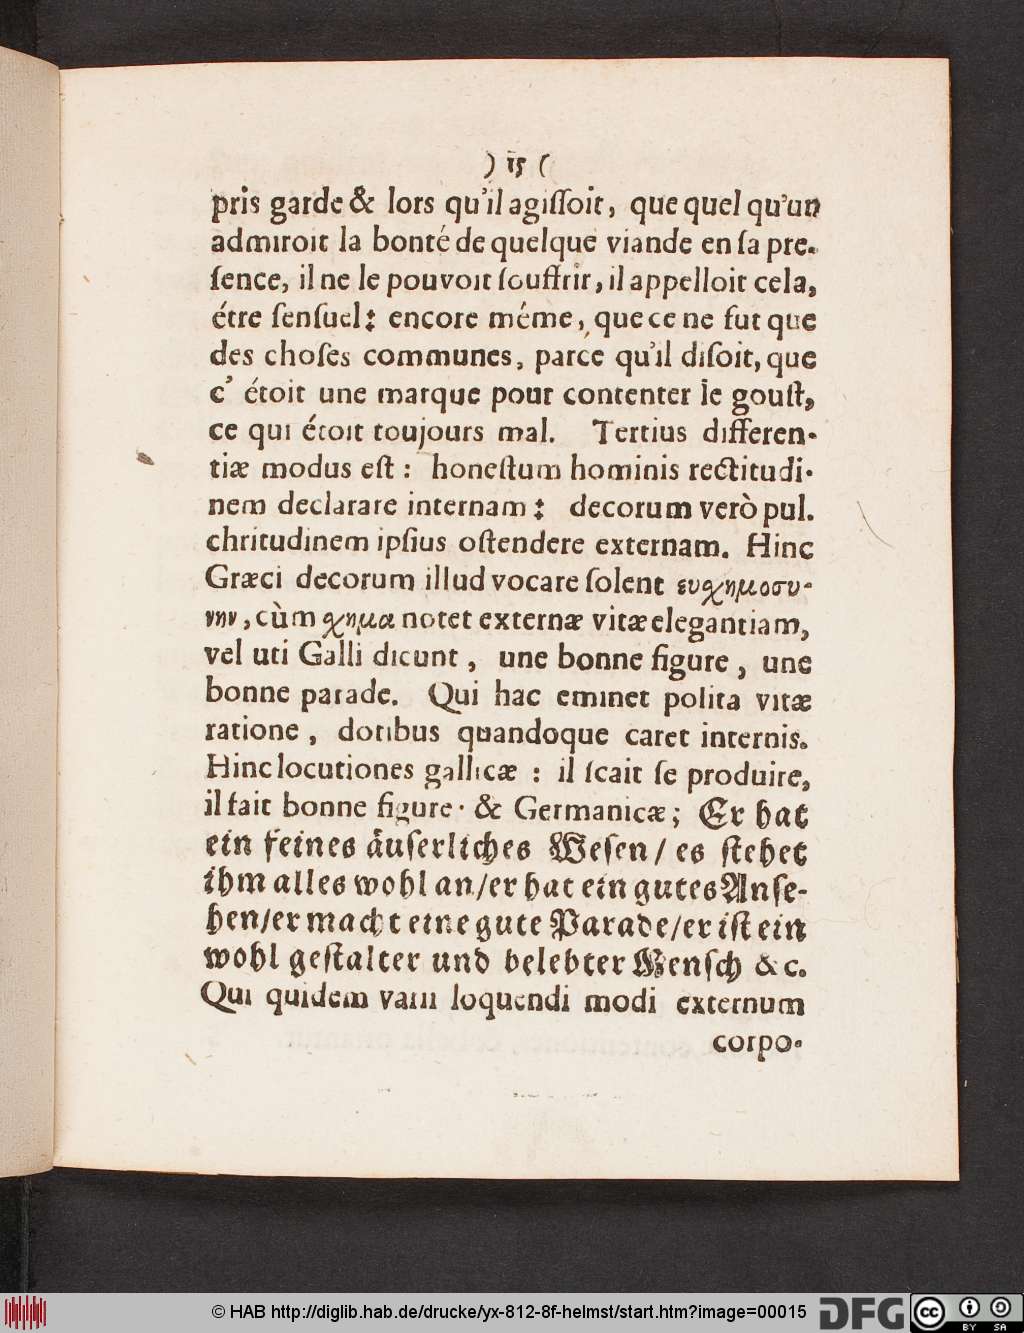 ) 15 (
pris garde & lors qu'il agiſſoit, que quel qu'un
admiroit la bonté de quelque viande en ſa pre-
ſence, il ne le pouvoit ſouffrir, il appelloit cela,
étre ſenſuel: encore méme, que ce ne fut que
des choſes communes, parce qu'il diſoit, que
c' étoit une marque pour contenter le gouſt,
ce qui étoit toujours mal. Tertius differen-
tiæ modus eſt: honeſtum hominis rectitudi-
nem declarare internam: decorum verò pul.
chritudinem ipſius oſtendere externam. Hinc
Græci decorum illud vocare ſolent ευχημοσυ-
νην, cùm χημα notet externæ vitæ elegantiam,
vel uti Galli dicunt, une bonne figure, une
bonne parade. Qui hac eminet polita vitæ
ratione, dotibus quandoque caret internis.
Hinc locutiones gallicæ: il ſcait ſe produire,
il fait bonne figure. & Germanicæ; Er hat
ein feines äuſerliches Weſen/ es ſtehet
ihm alles wohl an/er hat ein gutes Anſe-
hen/er macht eine gute Parade/er iſt ein
wohl geſtalter und belebter Menſch &c.
Qui quidem varii loquendi modi externum
corpo-
© HAB http://diglib.hab.de/drucke/yx-812-8f-helmst/start.htm?image=00015
DFG
cc BY SA